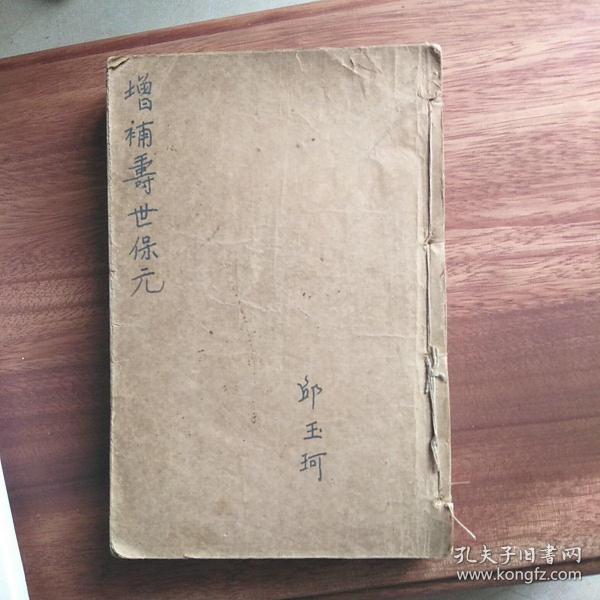 增補壽世保元
邱玉珂
孔夫子旧書网
www.kongfz.com